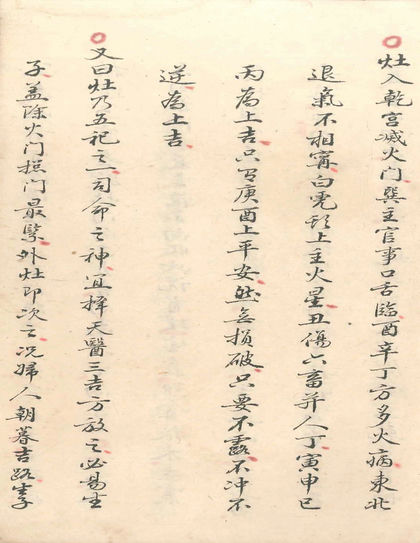 灶入乾宫滅火门巽主官事口舌臨酉辛丁方多火病東北
退氣不相寧白虎上主火星丑傷六畜并人丁寅申巳
丙為上吉只庚酉上平安然無損破只要不露不冲不
逆為上吉
又曰灶乃五祀之一司命之神宜擇天醫三吉方放之必易生
子盖除火门门最緊外灶即次之况婦人朝暮吉路